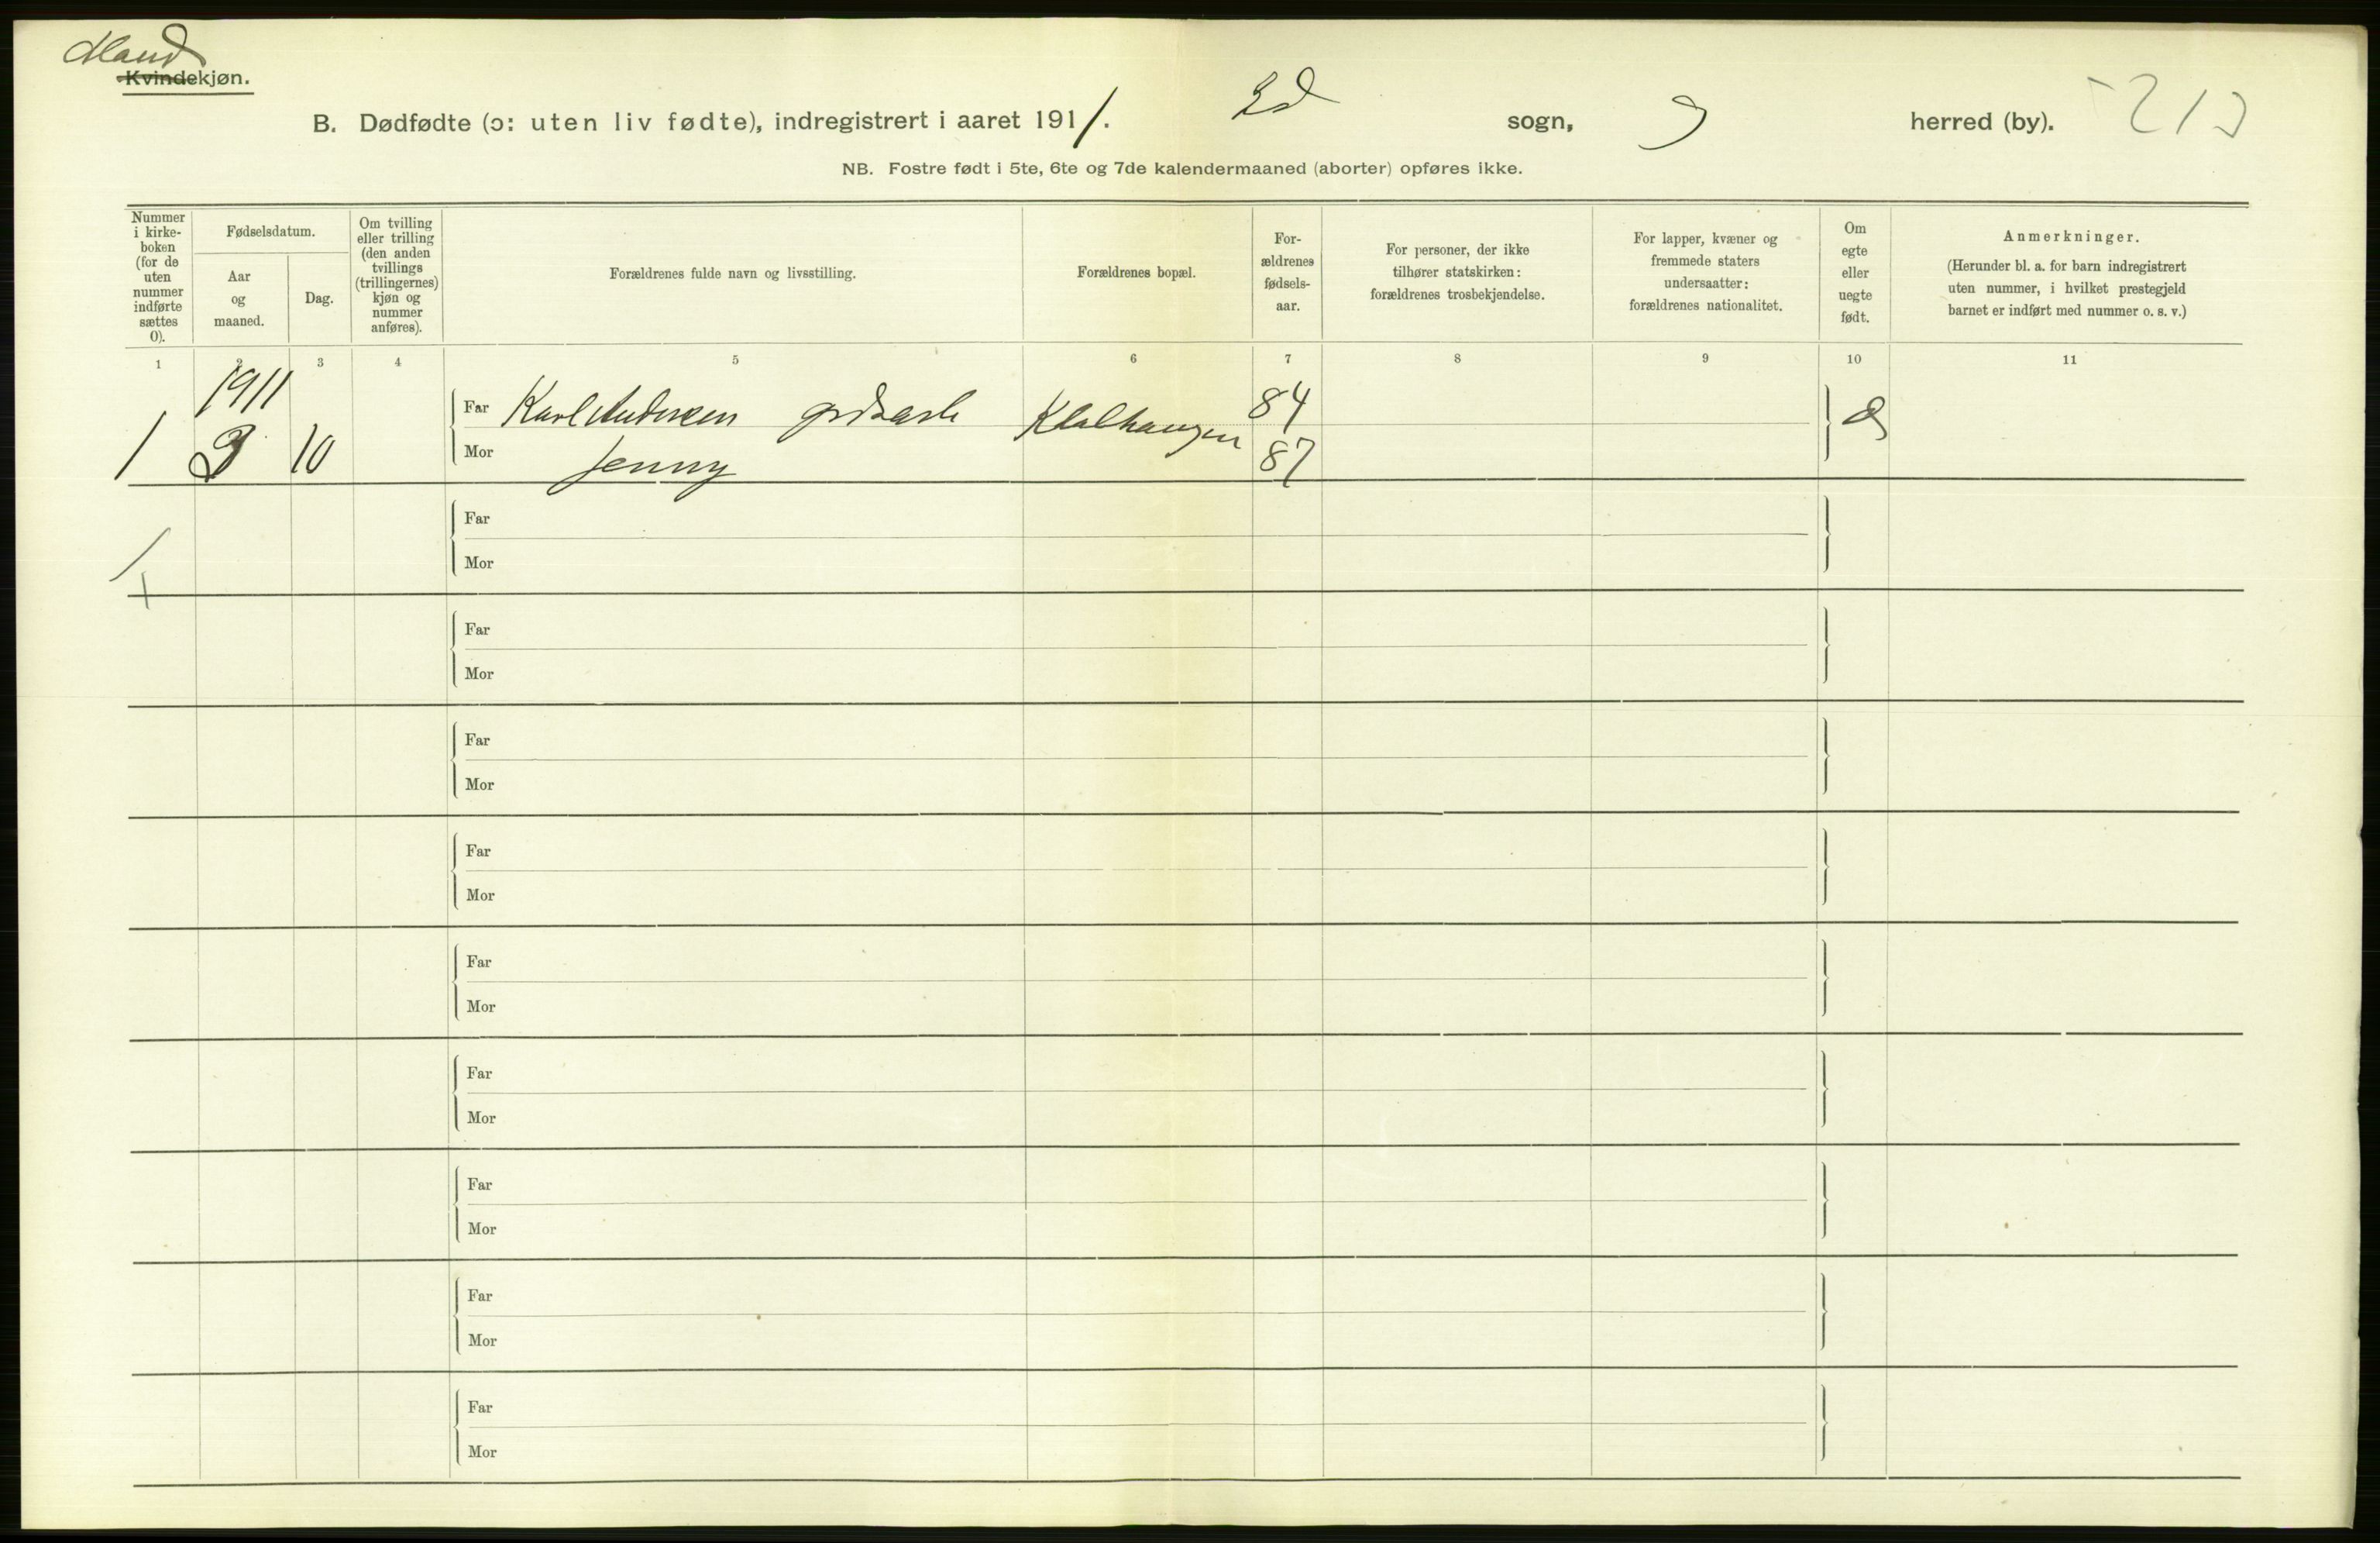 Mand
Kvindekjøn.
B. Dødfødte (ɔ: uten liv fødte), indregistrert i aaret 1911. sogn, herred (by). 212
NB. Fostre født i 5te, 6te og 7de kalendermaaned (aborter) opføres ikke.
Nummer i kirke-boken (for de uten nummer indførte sættes 0).
Fødselsdatum.
Aar og maaned.
Dag.
Om tvilling eller trilling (den anden tvillings (trillingernes) kjøn og nummer anføres).
Forældrenes fulde navn og livsstilling.
Forældrenes bopæl.
For-ældrenes fødsels-aar.
For personer, der ikke tilhører statskirken: forældrenes trosbekjendelse.
For lapper, kvæner og fremmede staters undersaatter: forældrenes nationalitet.
Om egte eller uegte født.
Anmerkninger.
(Herunder bl. a. for barn indregistrert uten nummer, i hvilket prestegjeld barnet er indført med nummer o. s. v.)
1 2 3 4 5 6 7 8 9 10 11
1911
Far Karl Andersen 84
1 3 10 Mor Jenny 87
Far
Mor
1
Far
Mor
Far
Mor
Far
Mor
Far
Mor
Far
Mor
Far
Mor
Far
Mor
Far
Mor